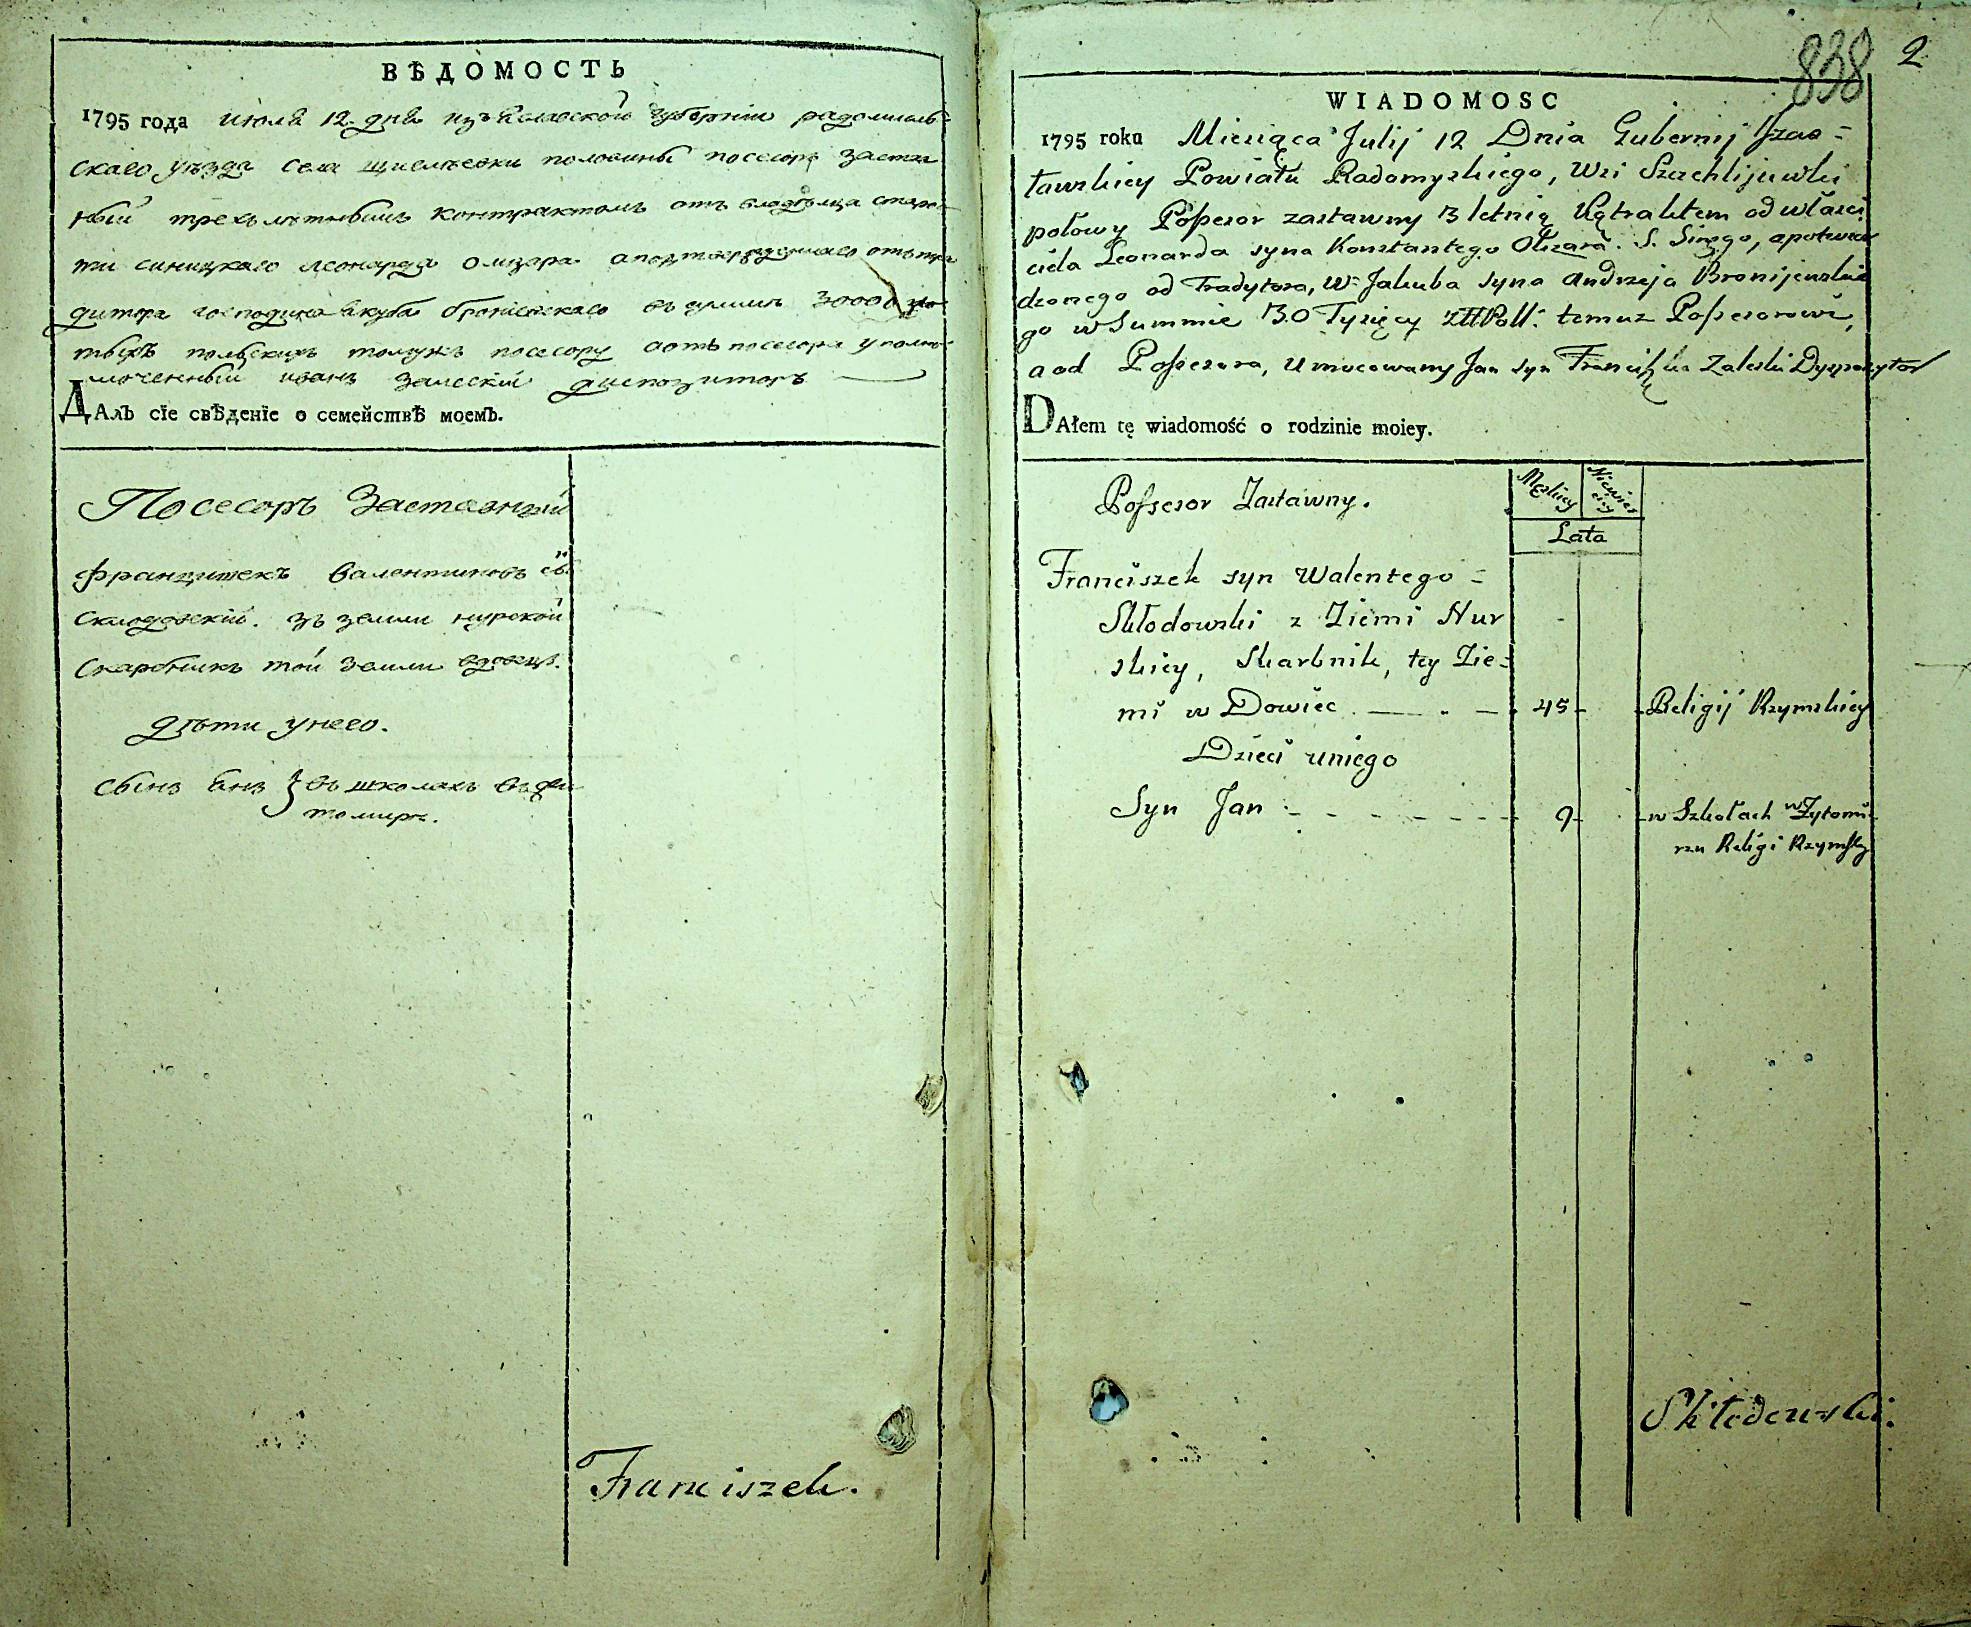 ВѢДОМОСТЬ
1795 года июля 12 дня изъяславской губерніи радомысль-
скаго уѣзда села щиглѣевки половины посесоръ застав
ный трехълѣтнымъ контрактомъ отъ владѣльца старос
ти синицкаго леонарда олизара а подтвержденнаго отътра
дитора господина якуба броніевскаго въ суммѣ 30000 зло
тыхъ польскихъ томужъ посесору аотъ посесора уполно-
моченный иванъ залескій диспозиторъ
ДАлъ сіе свѣденіе о семействѣ моемъ.
Посесоръ Заставный
францишекъ валентиновъ сынъ
склодовскій. зъ земли нурской
скарбникъ той земли вдовецъ.
дѣти унего.
сынъ янъ } въ школахъ въжи
томирѣ.
Franciszek.
838 2
WIADOMOSC
1795 roku Miesiąca Julij 12 Dnia Gubernij Jzas=
ławskiey Powiatu Radomyskiego, Wsi
połowy Possesor zastawny 3 letnią Kątraktem od właści
ciela Leonarda syna Konstantego Olizara. S. apotwier
dzonego od Tradytora, W: Jakuba syna Andrzeja Bronijewskie
go w Summie 30 Tysięcy Temuz Possesorowi,
a od Possesora, Umocowany Jan syn Franciszka Zaleski Dyspozytor
DAłem tę wiadomość o rodzinie moiey.
Possesor Zastawny.
Męskiey Niewieściey
Lata
Franciszek syn Walentego =
Skłodowski z Ziemi Nur
skiey, Skarbnik, tey Zie=
mi w Dowiec . — . — 45 - Religij Rzymskiey
Dzieci uniego
Syn Jan - - - - - - - 9 - w Szkołach w Zytomi-
rzu Religi Rzymskiy
Skłodowski.